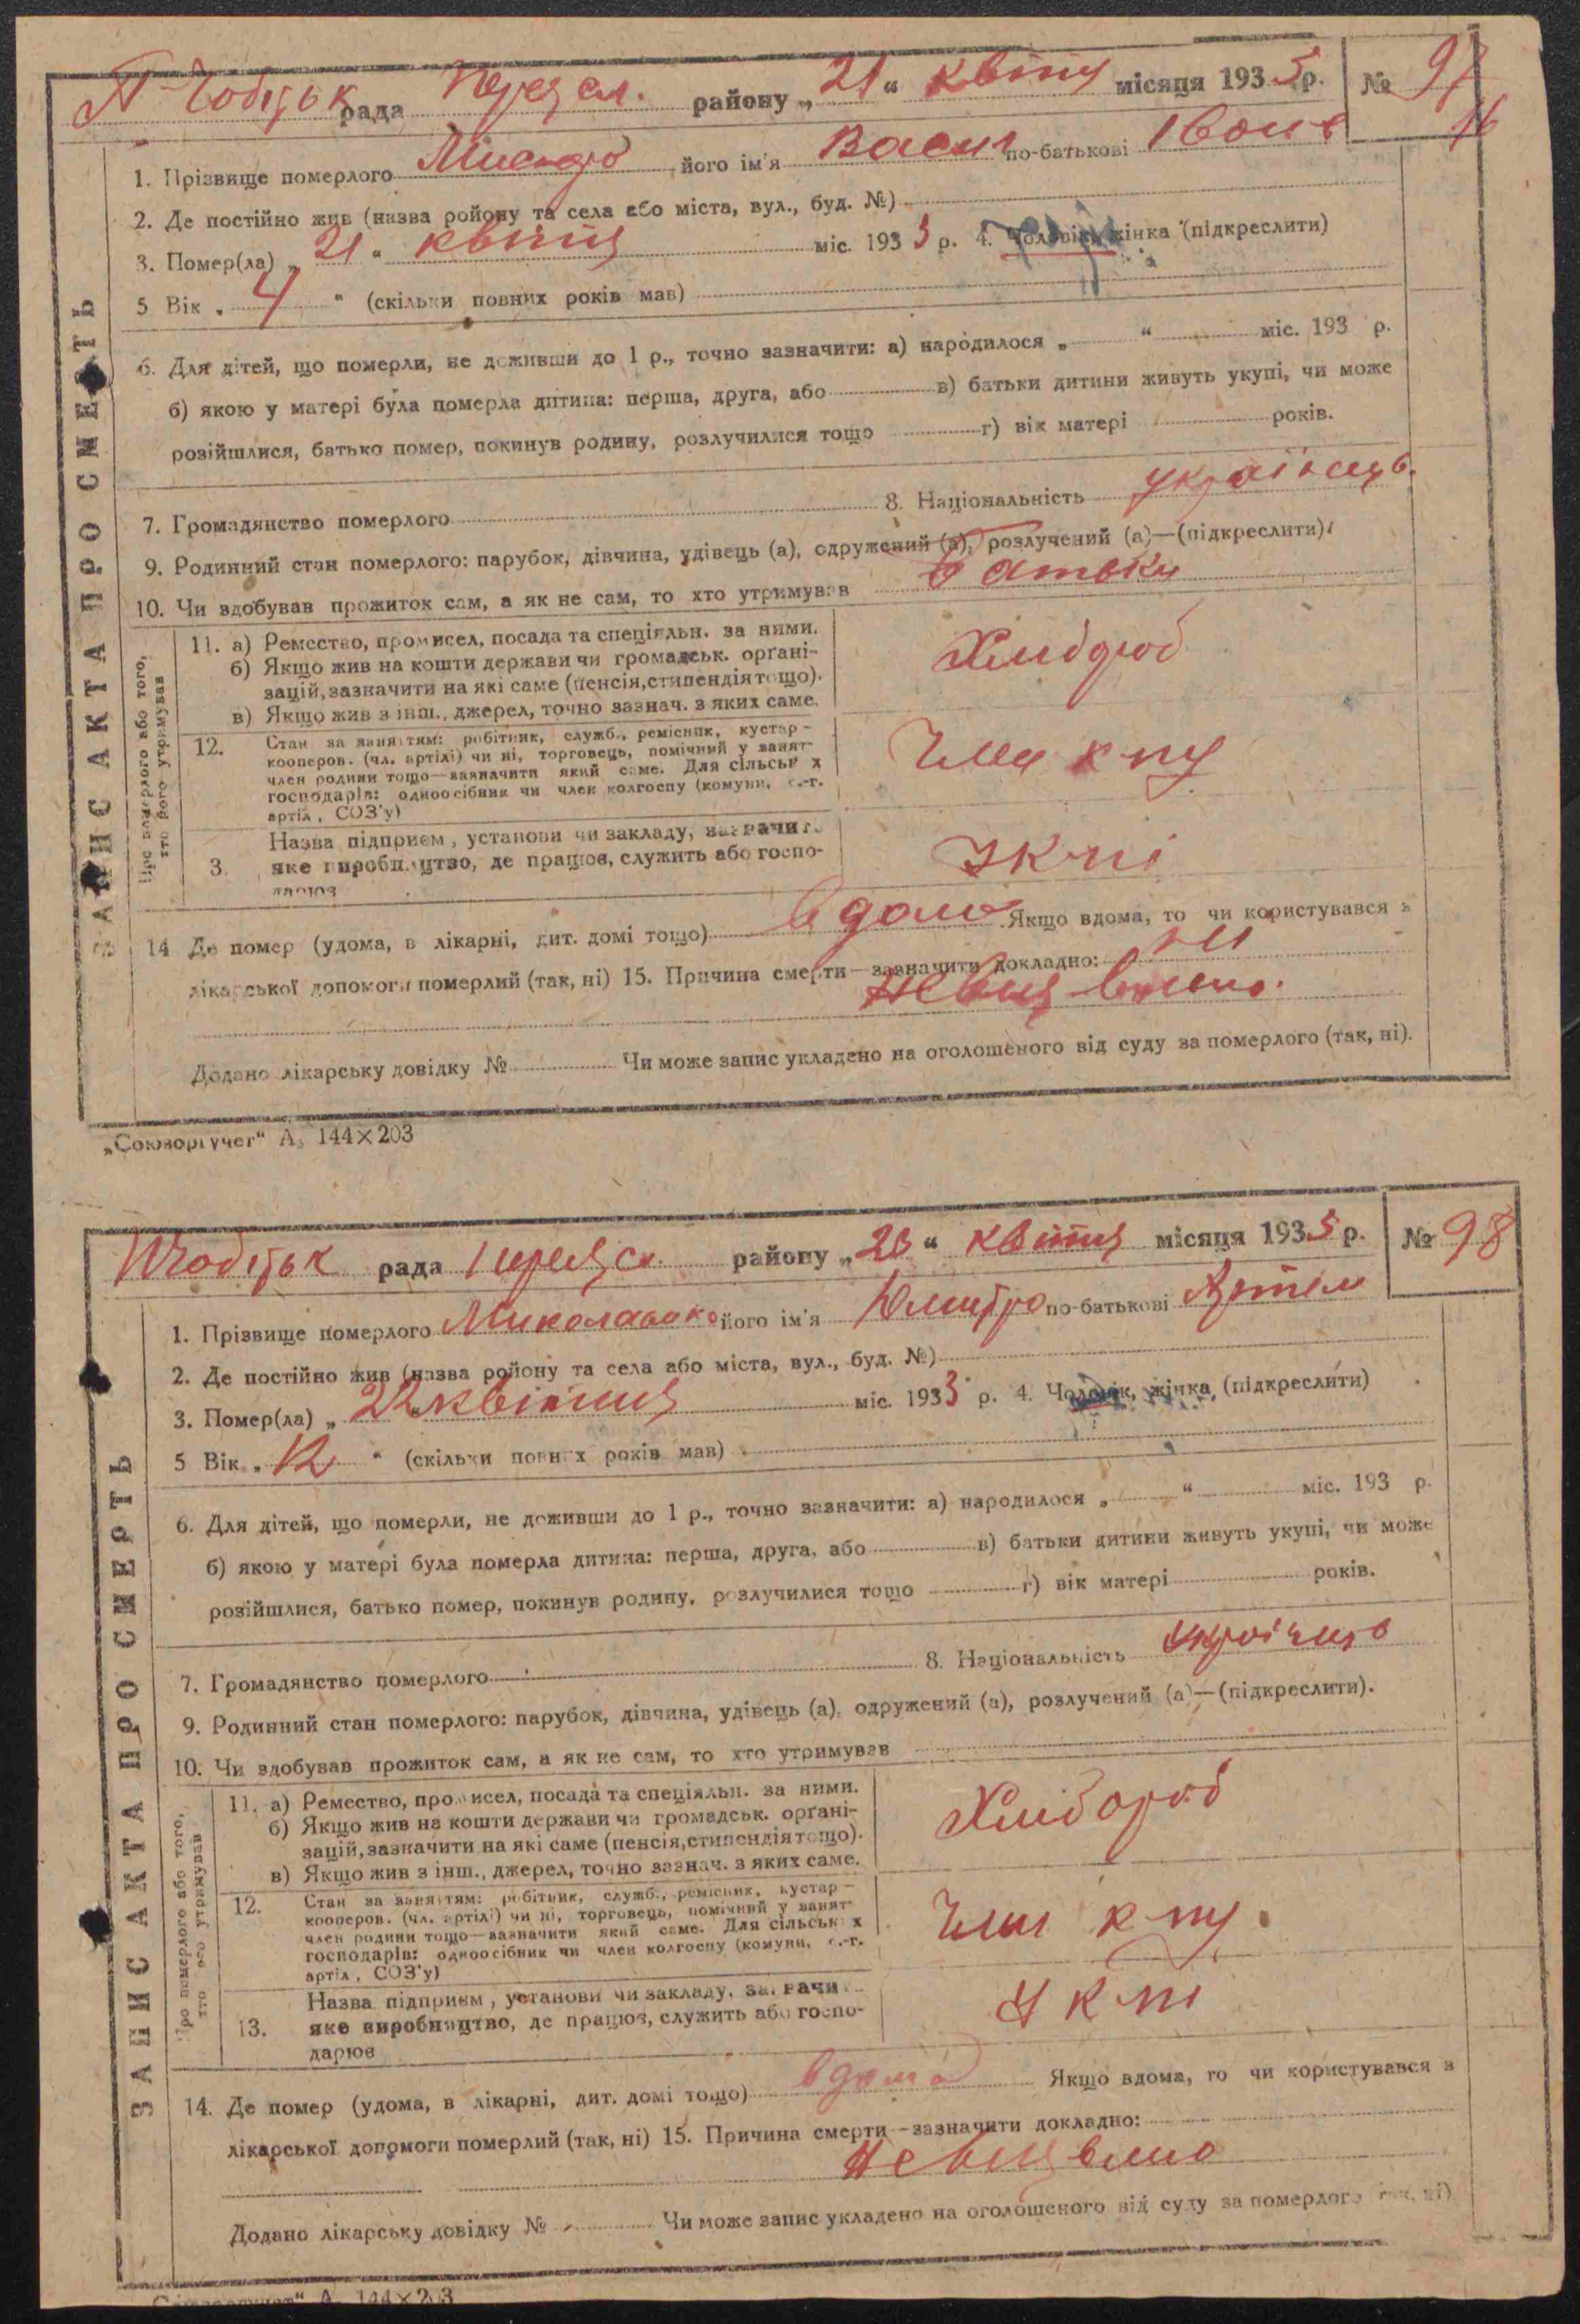 рада району „ 21 “ квітня місяця 1933 р. № 97
16
1. Прізвище померлого його ім'я Васил по-батькові
2. Де постійно жив (назва ройону та села або міста, вул., буд. №)
3. Помер(ла) „ 21 “ квітня міс. 1933 р. 4. Чоловік, жінка (підкреслити)
5 Вік „ 4 “ (скільки повних років мав)
6. Для дітей, що померли, не доживши до 1 р., точно зазначити: а) народилося „ “ міс. 193 р.
б) якою у матері була померла дитина: перша, друга, або в) батьки дитини живуть укупі, чи може
розійшлися, батько помер, покинув родину, розлучилися тощо г) вік матері років.
7. Громадянство померлого 8. Національність українець.
9. Родинний стан померлого: парубок, дівчина, удівець (а), одружений (а), розлучений (а)—(підкреслити)
10. Чи здобував прожиток сам, а як не сам, то хто утримував батьки
ЗАПИС АКТА ПРО СМЕРТЬ
Про померлого або того, хто його утримував
11. а) Ремество, промисел, посада та спеціяльн. за ними.
б) Якщо жив на кошти держави чи громадськ. орґані-
зацій, зазначити на які саме (пенсія, стипендія тощо).
в) Якщо жив з інш., джерел, точно зазнач. з яких саме.
Хлібороб
12. Стан за заняттям: робітник, служб., ремісник, кустар –
кооперов. (чл. артілі) чи ні, торговець, помічний у занят-
член родини тощо—зазначити який саме. Для сільськ х
господарів: одноосібник чи член колгоспу (комуни, с.-г.
артіл, СОЗ'у)
Член к гу
3. Назва підприєм, установи чи закладу, зазначить
яке виробництво, де працює, служить або госпо-
дарює
14 Де помер (удома, в лікарні, дит. домі тощо) вдома Якщо вдома, то чи користувався з
лікарської допомоги померлий (так, ні) 15. Причина смерти—зазначити докладно: ні
Невияв лено.
Додано лікарську довідку № Чи може запис укладено на оголошеного від суду за померлого (так, ні).
„Союзоргучет“ А₅ 144×203
рада району „ 23 “ квітня місяця 1933 р. № 98
1. Прізвище померлого Миколаенко його ім'я Дмитро по-батькові Артем
2. Де постійно жив (назва ройону та села або міста, вул., буд. №)
3. Помер(ла) „ 22 квітня міс. 1933 р. 4. Чоловік, жінка (підкреслити)
5 Вік „ 12 “ (скільки повних років мав)
6. Для дітей, що померли, не доживши до 1 р., точно зазначити: а) народилося „ “ міс. 193 р.
б) якою у матері була померла дитина: перша, друга, або в) батьки дитини живуть укупі, чи може
розійшлися, батько помер, покинув родину, розлучилися тощо г) вік матері років.
7. Громадянство померлого 8. Національність українець
9. Родинний стан померлого: парубок, дівчина, удівець (а), одружений (а), розлучений (а)—(підкреслити).
10. Чи здобував прожиток сам, а як не сам, то хто утримував
ЗАПИС АКТА ПРО СМЕРТЬ
Про померлого або того, хто його утримував
11. а) Ремество, промисел, посада та спеціяльн. за ними.
б) Якщо жив на кошти держави чи громадськ. орґані-
зацій, зазначити на які саме (пенсія, стипендія тощо).
в) Якщо жив з інш., джерел, точно зазнач. з яких саме.
Хлібороб
12. Стан за заняттям: робітник, служб., ремісник, кустар –
кооперов. (чл. артілі) чи ні, торговець, помічний у занят-
член родини тощо—зазначити який саме. Для сільськ х
господарів: одноосібник чи член колгоспу (комуни, с.-г.
артіл, СОЗ'у)
Член к гу.
13. Назва підприєм, установи чи закладу, зазначи
яке виробництво, де працює, служить або госпо-
дарює
14. Де помер (удома, в лікарні, дит. домі тощо) вдома Якщо вдома, то чи користувався з
лікарської допомоги померлий (так, ні) 15. Причина смерти—зазначити докладно:
Невияв лено
Додано лікарську довідку № Чи може запис укладено на оголошеного від суду за померлого (так, ні)
„Союзоргучет“ А₅ 144×203